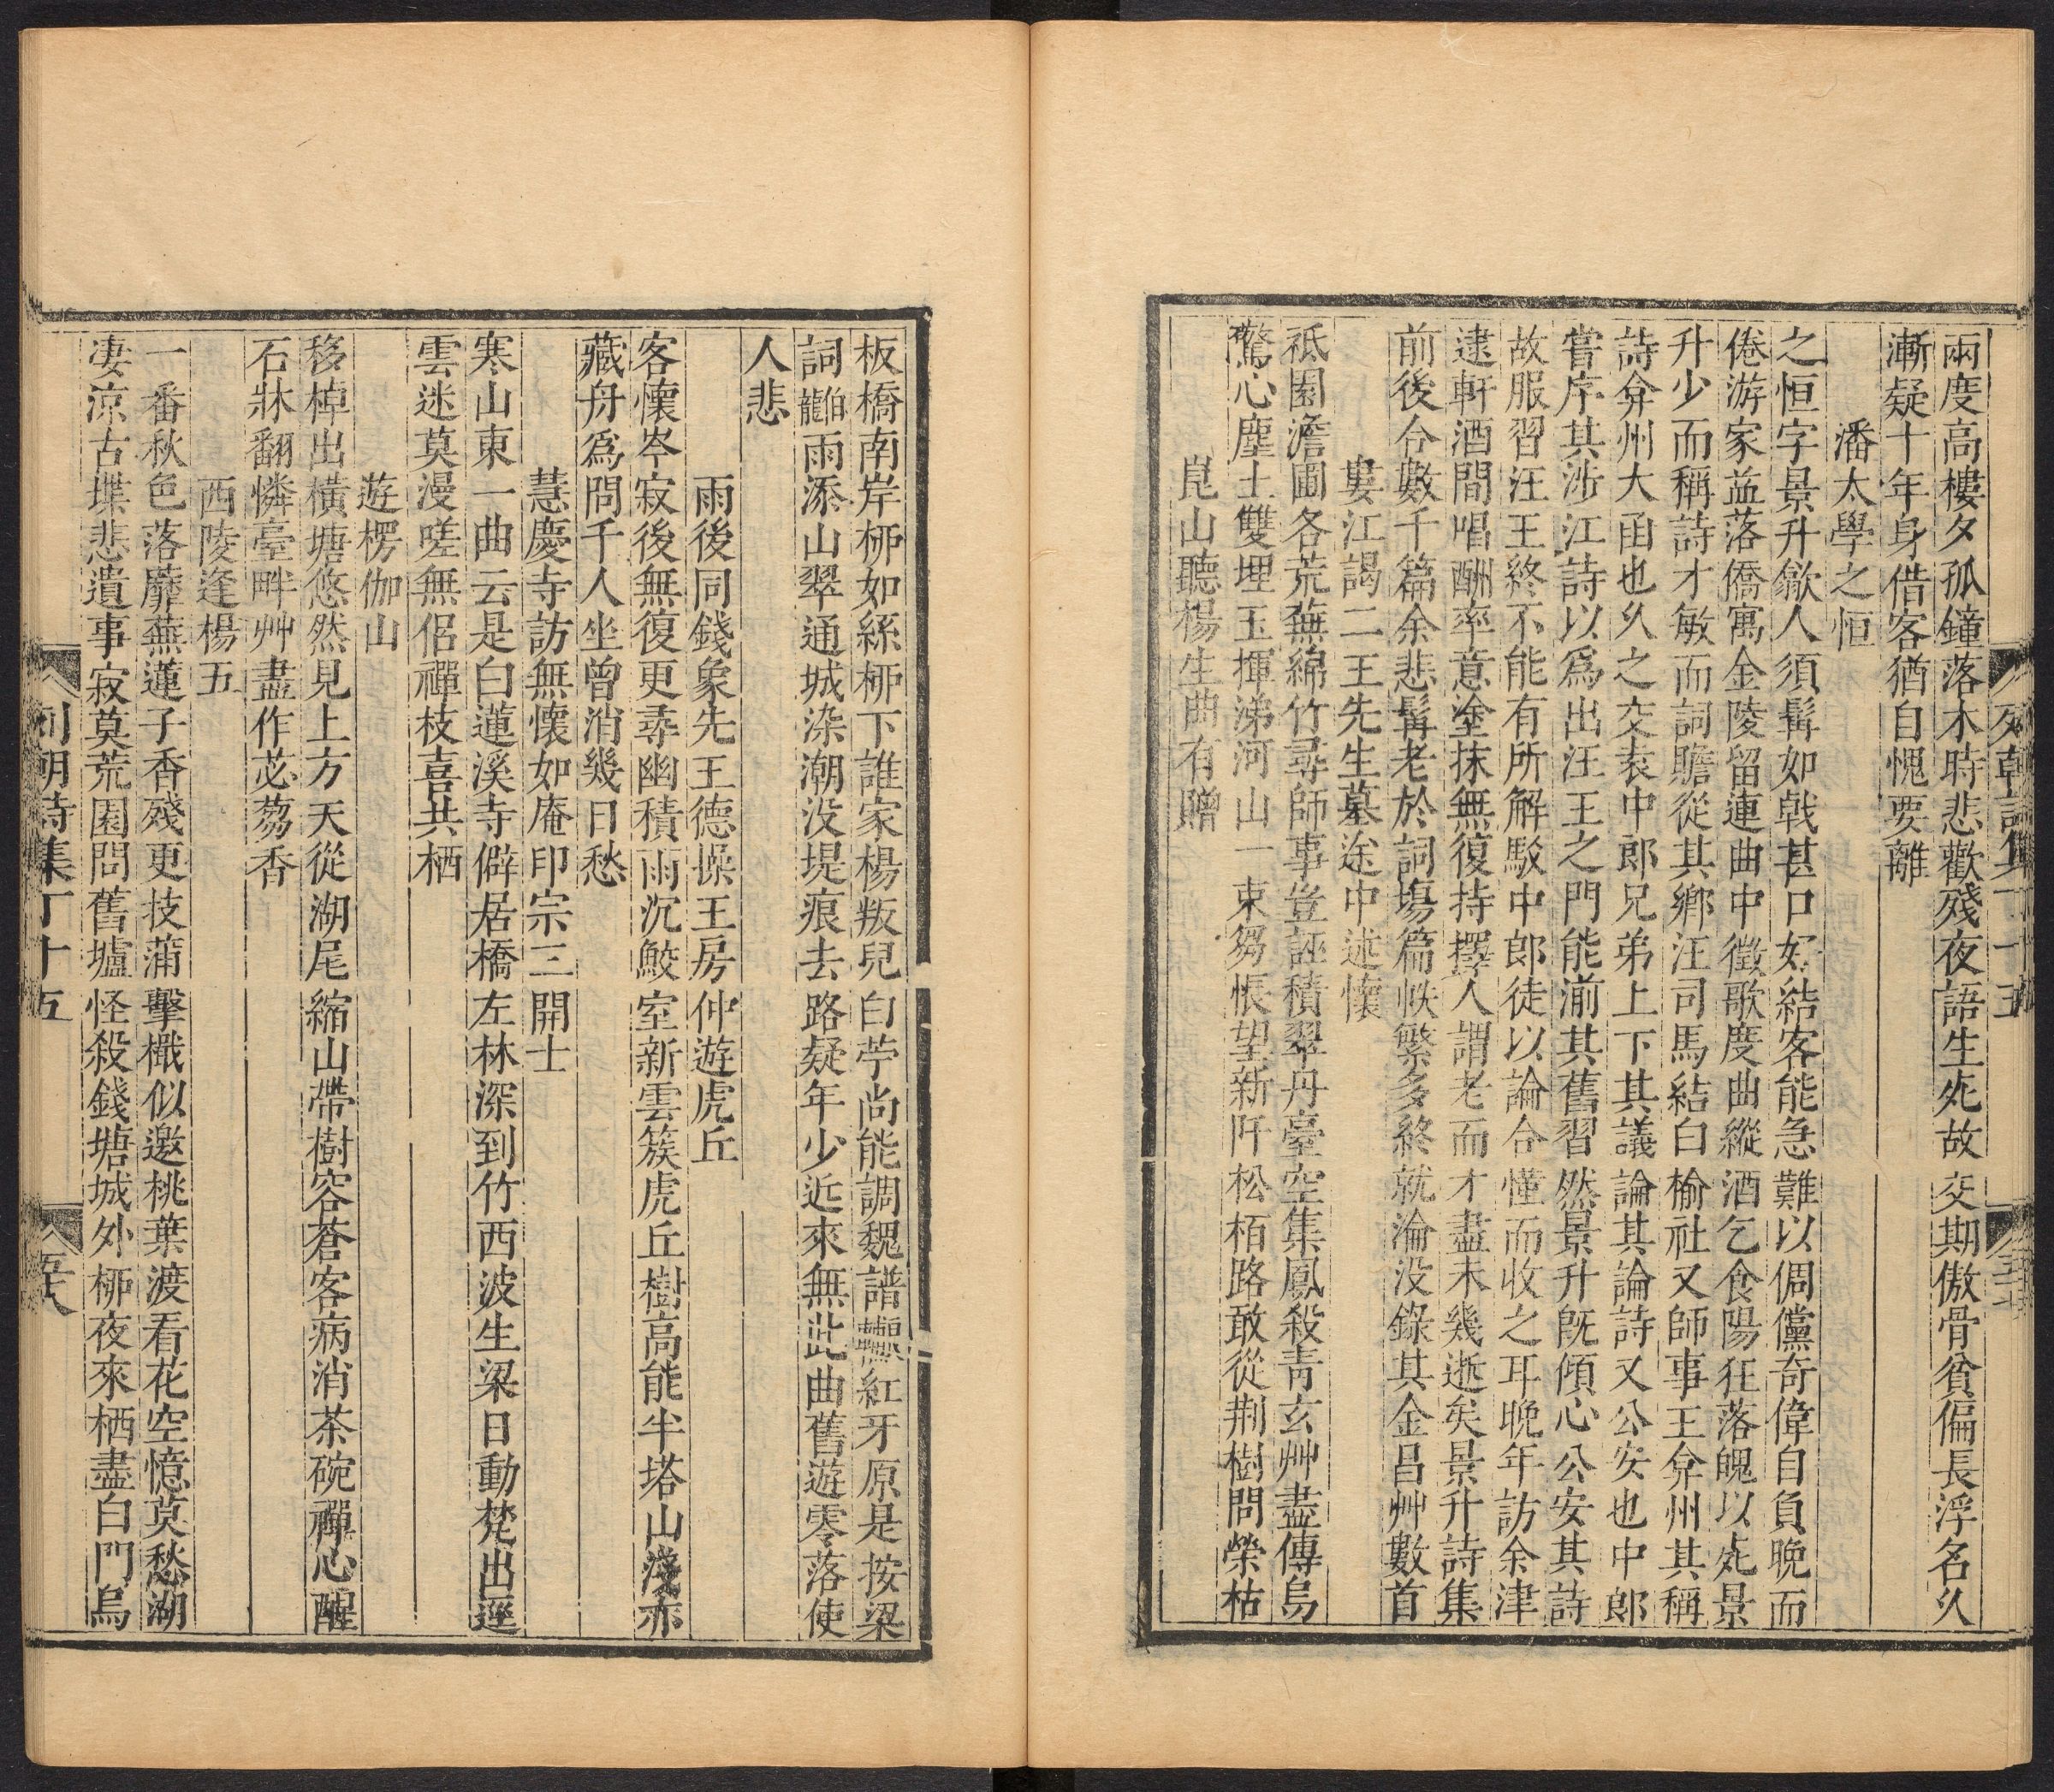 兩度高樓夕孤鐘落木時悲歡殘夜語生死故交期傲骨貧偏長浮名久
漸疑十年身借客猶自愧要離
潘太學之恒
之恒字景升歙人須髯如戟甚口好結客能急難以倜儻奇偉自負晚而
倦游家益落僑寓金陵留連曲中徵歌度曲縱酒乞食陽狂落魄以死景
升少而稱詩才敏而詞贍從其鄉汪司馬結白榆社又師事王弇州其稱
詩弇州大函也久之交袁中郎兄弟上下其議論其論詩又公安也中郎
嘗序其涉江詩以爲出汪王之門能湔其舊習然景升旣傾心公安其詩
故服習汪王終不能有所解駁中郎徒以論合懂而收之耳晚年訪余津
逮軒酒間唱酬率意塗抹無復持擇人謂老而才盡未幾逝矣景升詩集
前後合數千篇余悲髯老於詞塲篇帙繁多終就淪没錄其金昌艸數首
婁江謁二王先生墓途中述懷
祗園澹圃各荒蕪綿竹尋師事豈誣積翠丹臺空集鳳殺青玄艸盡傳烏
驚心塵土雙埋玉揮涕河山一束芻悵望新阡松栢路敢從荆樹問榮枯
崑山聽楊生曲有贈
板橋南岸柳如絲柳下誰家楊叛兒白苧尚能調魏譜紅牙原是按梁
詞雨添山翠通城染潮没堤痕去路疑年少近來無此曲舊遊零落使
人悲
雨後同錢象先王德操王房仲遊虎丘
客懷岑寂後無復更尋幽積雨沉鮫室新雲簇虎丘樹高能半塔山淺亦
藏舟爲問千人坐曾消幾日愁
慧慶寺訪無懷如庵印宗三開士
寒山東一曲云是白蓮溪寺僻居橋左林深到竹西波生梁日動梵出逕
雲迷莫漫嗟無侶禪枝喜共栖
遊楞伽山
移棹出橫塘悠然見上方天從湖尾縮山帶樹容蒼客病消茶碗禪心醒
石牀翻憐臺畔艸盡作苾芻香
西陵逢楊五
一番秋色落蘼蕪蓮子香殘更技蒲擊檝似邀桃葉渡看花空憶莫愁湖
凄涼古堞悲遺事寂莫荒園問舊壚怪殺錢塘城外柳夜來栖盡白門烏
列朝詩集丁十五